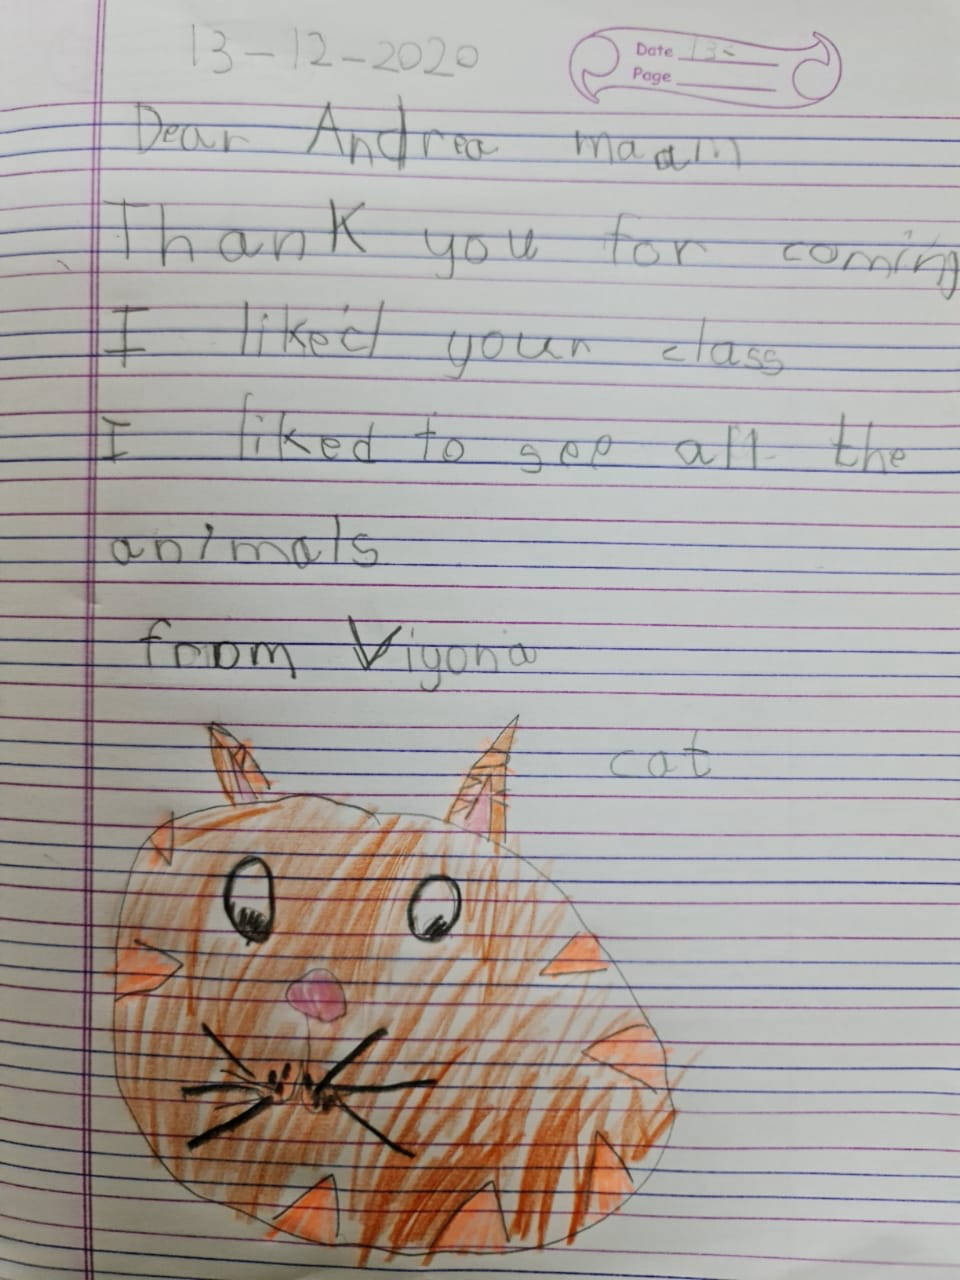 13-12-2020
Date 13
Page
Dear Andrea maam
Thank you for coming
I liked your class
I liked to see all the
animals
from Viyona
cat